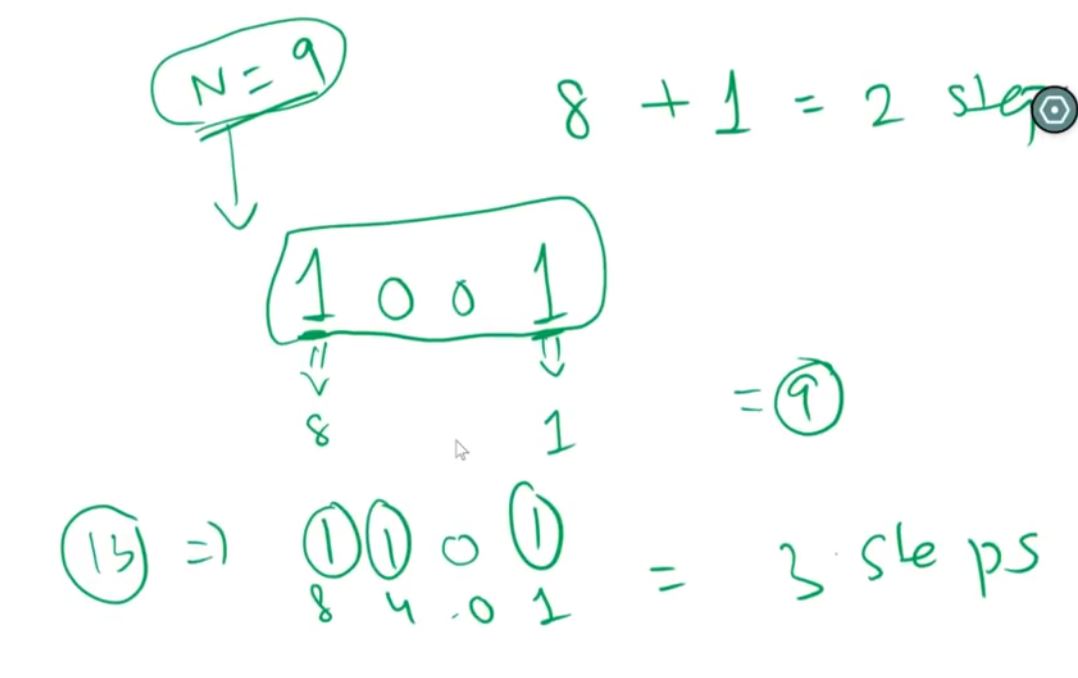 N = 9
8 + 1 = 2 step
1 0 0 1
8 1
= 9
13 => 1 1 0 1 = 3 steps
8 4 0 1